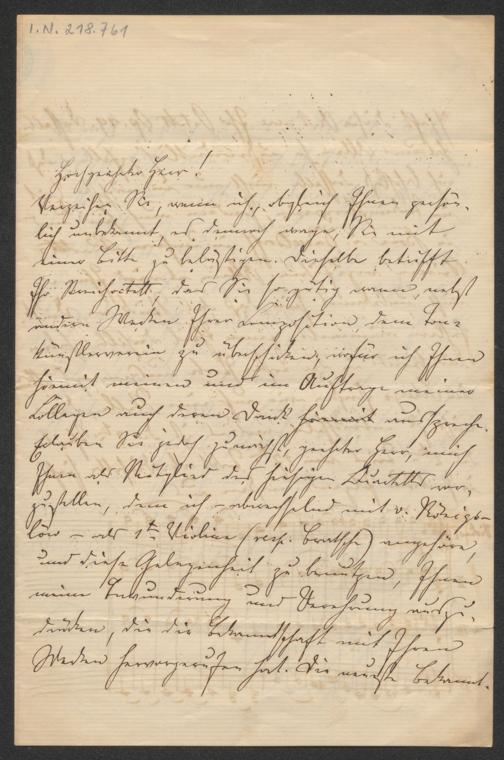 I.N. 218.761
Hochgeehrter Herr!
Verzeihen Sie, wenn ich, obgleich Ihnen persön-
lich unbekannt, es dennoch wage, Sie mit
einer Bitte zu belästigen. Dieselbe betrifft
Ihr Streichortett, das Sie so gütig waren, nebst
andern Werken Ihrer Composition, dem Ton-
künstlerverein zu überschicken, wofür ich Ihnen
hiermit meinen und im Auftrage meiner
Collegen auch deren Dank hiermit ausspreche.
Erlauben Sie jedoch zunächst, geehrter Herr, mich
Ihnen als Mitglied des hiesigen Quartetts vor-
zustellen, dem ich – abwechselnd mit v. Königs-
löw – als 1te Violine (resp. Bratsche) angehöre,
und diese Gelegenheit zu benutzen, Ihnen
meine Bewunderung und Verehrung auszu-
drücken, die die Bekanntschaft mit Ihren
Werken hervorgerufen hat. Die neueste Bekannt-